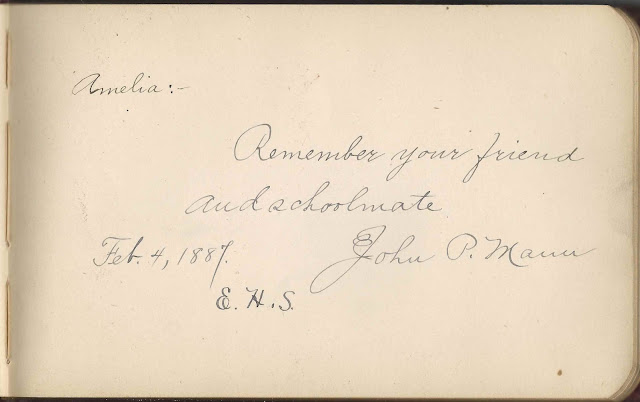 Amelia:-
Remember your friend
and schoolmate
John P. Mann
Feb. 4, 1887.
E. H. S.